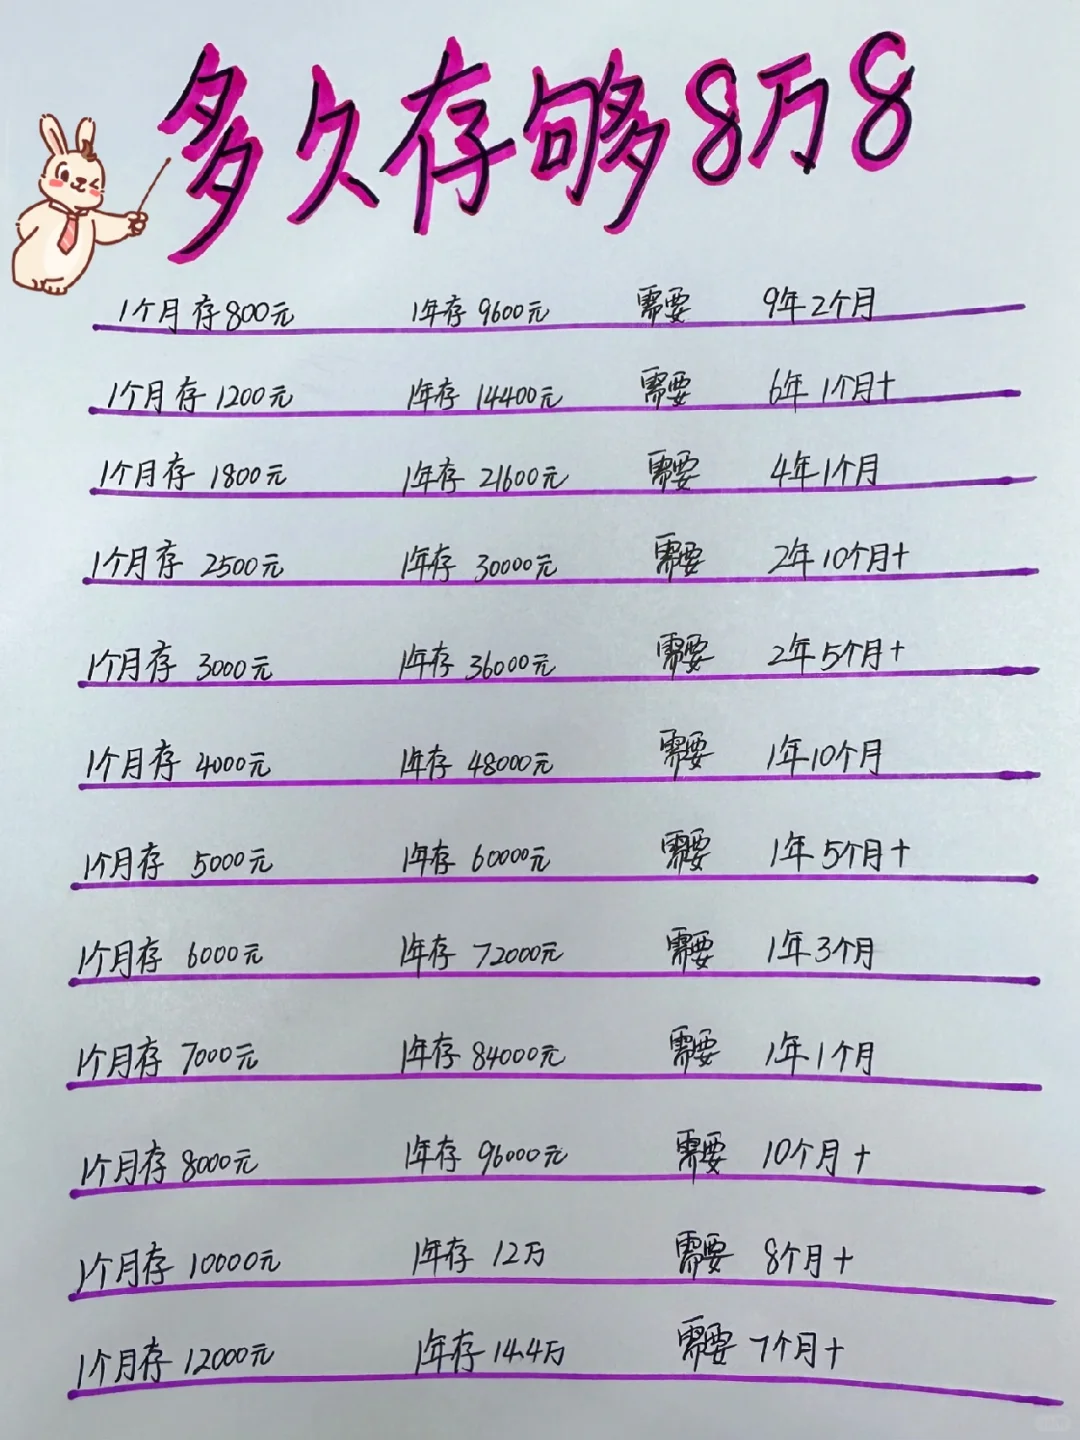 多久存够8万8
1个月存800元 1年存9600元 需要 9年2个月
1个月存1200元 1年存14400元 需要 6年1个月+
1个月存1800元 1年存21600元 需要 4年1个月
1个月存2500元 1年存30000元 需要 2年10个月+
1个月存3000元 1年存36000元 需要 2年5个月+
1个月存4000元 1年存48000元 需要 1年10个月
1个月存5000元 1年存60000元 需要 1年5个月+
1个月存6000元 1年存72000元 需要 1年3个月
1个月存7000元 1年存84000元 需要 1年1个月
1个月存8000元 1年存96000元 需要 10个月+
1个月存10000元 1年存12万 需要 8个月+
1个月存12000元 1年存14.4万 需要 7个月+